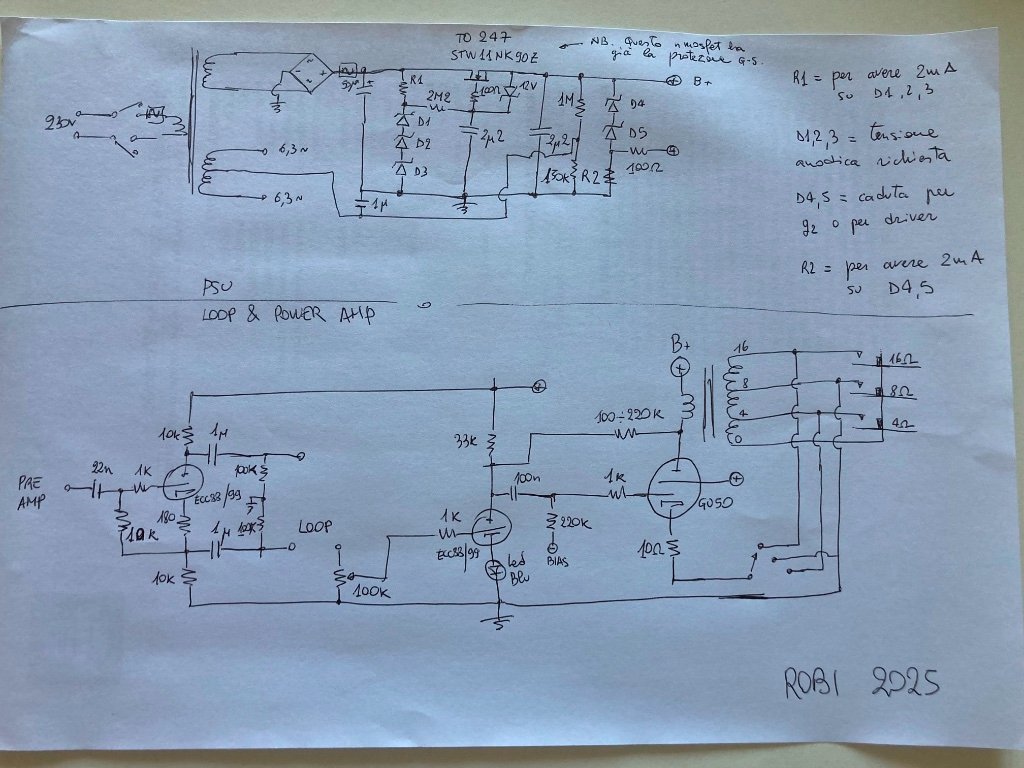 TO 247
STW11NK90Z
NB. Questo nmosfet ha
già la protezione G-S.
R1 = per avere 2mA
su D1,2,3
D1,2,3 = tensione
anodica richiesta
D4,5 = caduta per
g2 o per driver
R2 = per avere 2mA
su D4,5
230V
6,3~
6,3~
50µ
+
R1
D1
D2
D3
2M2
100Ω
12V
2µ2
2µ2
1M
130K
D4
D5
R2
100Ω
B+
1µ
PSU
LOOP & POWER AMP
PRE
AMP
22n
1K
10K
1µ
100K
ECC88/99
180
1µ
10K
LOOP
100K
1K
33K
ECC88/99
Led
Blu
100n
220K
BIAS
1K
100÷220K
B+
GU50
10Ω
16
8
4
0
16Ω
8Ω
4Ω
ROBI 2025